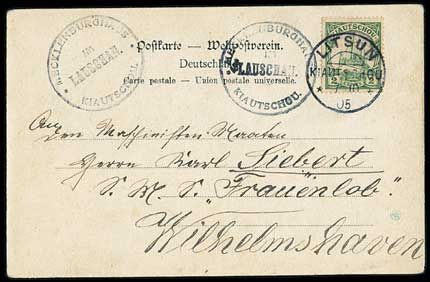 MECKLENBURGHAUS
IM
LAUSCHAN.
KIAUTSCHOU.
Postkarte — Weltpostverein.
Deutschland
Carte postale — Union postale universelle.
MECKLENBURGHAUS
IM
LAUSCHAN.
KIAUTSCHOU.
KIAUTSCHOU
LITSUN
KIAUTSCHOU
05
An
den Maschinisten-Maaten
Herrn Karl Siebert
S. M. S. „Frauenlob"
Wilhelmshaven